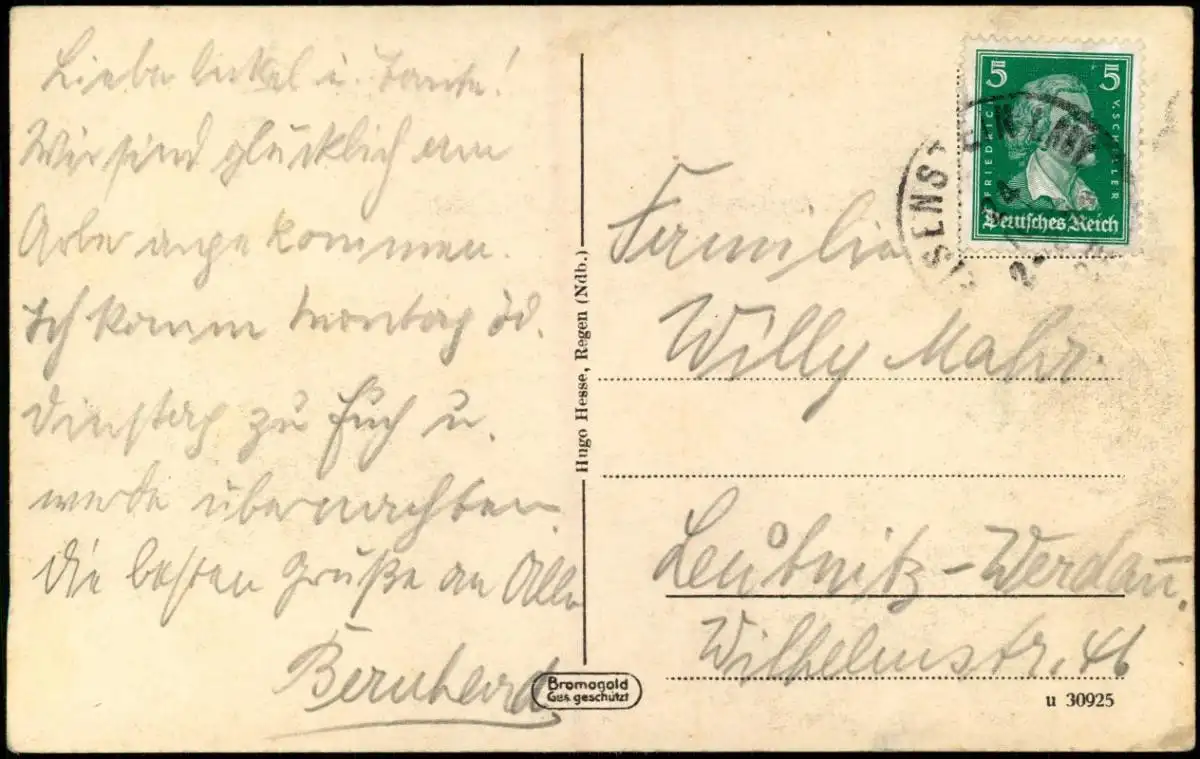 Liebe Onkel u Tante!
Wir sind glücklich am
Arber angekommen.
Ich komm Montag od.
Dienstag zu Euch u.
werde übernachten.
Die besten Grüße an Alle
Bernhard
Hugo Hesse, Regen (Ndb.)
Bromogold
Ges. geschützt
5 5
FRIEDRICH V. SCHILLER
Deutsches Reich
EISENSTEIN
24
Familie
Willy Mahr.
Leubnitz-Werdau.
Wilhelmstr. 46
u 30925